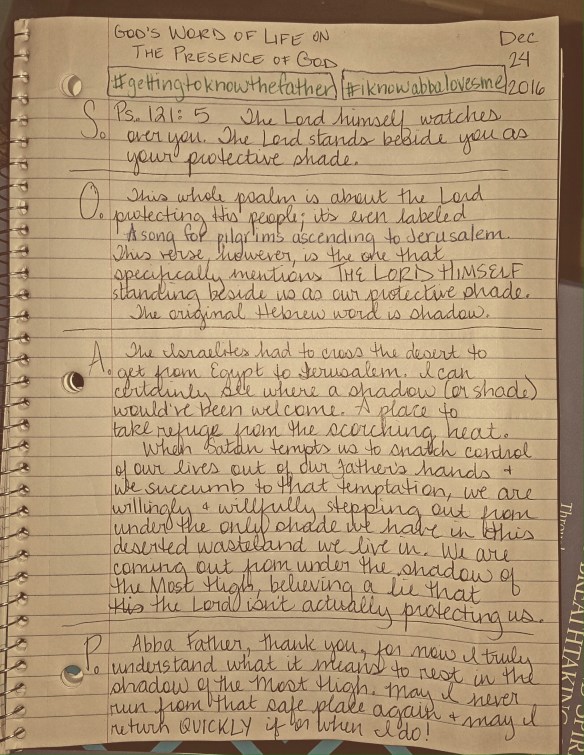 GOD'S WORD OF LIFE ON
THE PRESENCE OF GOD
Dec
24
2016
#gettingtoknowthefather #iknowabbalovesme
S. Ps. 121:5 The Lord himself watches
over you. The Lord stands beside you as
your protective shade.
O. This whole psalm is about the Lord
protecting His people; it's even labeled
A song for pilgrims ascending to Jerusalem.
This verse, however, is the one that
specifically mentions THE LORD HIMSELF
standing beside us as our protective shade.
The original Hebrew word is shadow.
A. The Israelites had to cross the desert to
get from Egypt to Jerusalem. I can
certainly see where a shadow (or shade)
would've been welcome. A place to
take refuge from the scorching heat.
When Satan tempts us to snatch control
of our lives out of our Father's hands +
we succumb to that temptation, we are
willingly + willfully stepping out from
under the only shade we have in this
deserted wasteland we live in. We are
coming out from under the shadow of
the Most High, believing a lie that
the Lord isn't actually protecting us.
P. Abba Father, thank you, for now I truly
understand what it means to rest in the
shadow of the Most High. May I never
run from that safe place again + may I
return QUICKLY if or when I do!